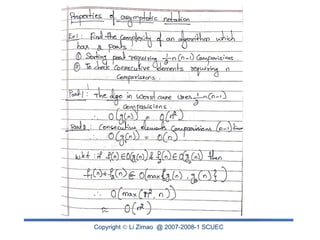 Properties of asymptotic notation
Ex1: Find the complexity of an algorithm which
has 2 parts
① Sorting part requiring ½n(n-1) comparisions
② To check consecutive elements requiring n
comparisions.
Part1: The algo in worst case uses ½n(n-1)
comparisions.
∴ O(g₁(n)) = O(n²)
Part2: Consecutive elements comparisions (n-1) times
O(g₂(n)) = O(n)
wkt: if f₁(n)∈O(g₁(n)) & f₂(n)∈O(g₂(n)) then
f₁(n)+f₂(n) ∈ O(max{g₁(n), g₂(n)})
∴ O(max(n², n))
≈ O(n²)
Copyright © Li Zimao @ 2007-2008-1 SCUEC